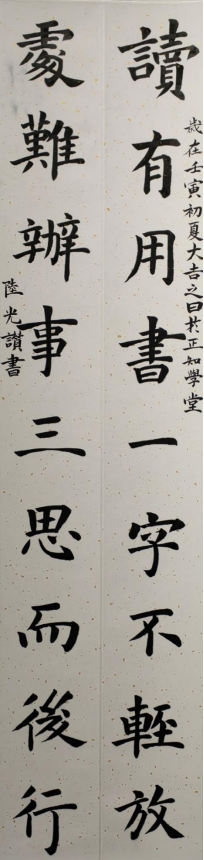 讀有用書一字不輕放
歲在壬寅初夏大吉之日於正知學堂
處難辦事三思而後行
陸光讃書